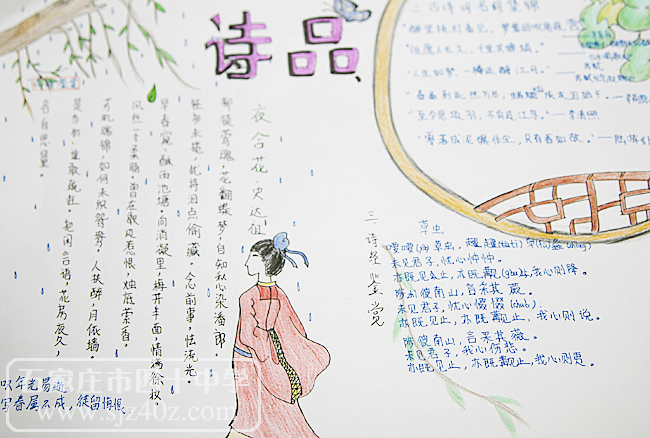 诗品
二 古诗词名句集锦
"醉里挑灯看剑，梦里吹角连营
"但愿人长久，千里共婵娟。"
苏轼
"人生如梦，一樽还酹江月。"
"至今思项羽，不肯过江东。"—李清照
"零落成泥碾作尘，只有香如故。"
夜合花 史达祖
柳锁莺魂，花翻蝶梦，自知愁染潘郎。
轻衫未揽，犹将泪点偷藏。念前事，怯流光。
早春窥、酥雨池塘。向消凝里，梅开半面，情满徐妆。
风丝一寸柔肠，曾在歌边惹恨，烛底萦香。
芳机瑞锦，如何未织鸳鸯。人扶醉，月依墙。
是当初、谁敢疏狂。把闲言语，花房夜久，
各自思量。
三 诗经鉴赏
草虫
喓喓(yāo)草虫，趯趯(tì tì)阜(fù)螽(zhōng)
未见君子，忧心忡忡。
亦既见止，亦既觏(gòu)止，我心则降。
陟彼南山，言采其蕨。
未见君子，忧心惙惙(chuò)。
亦既见止，亦既觏止，我心则说。
陟彼南山，言采其薇。
未见君子，我心伤悲。
亦既见止，亦既觏止，我心则夷。
叹年光易逝
写春属不成，徒留悔恨
石家庄市四十中学
www.sjz40z.com